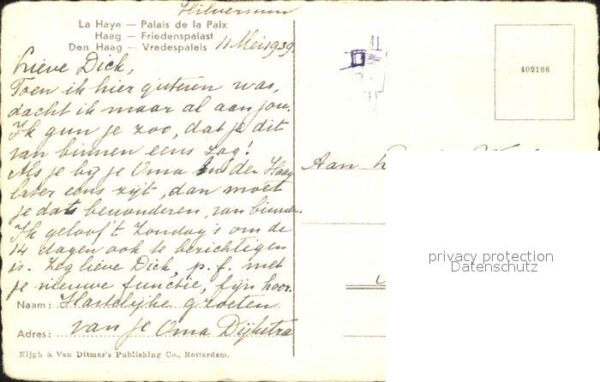 Hilversum
La Haye — Palais de la Paix
Haag — Friedenspalast
Den Haag — Vredespaleis
11 Mei 1939
Lieve Dick,
Toen ik hier gisteren was,
dacht ik maar al aan jou.
Ik gun je zoo, dat je dit
van binnen eens zag!
Als je bij je Oma in den Haag
later eens zijt, dan moet
je dat bewonderen, van binnen.
Ik geloof 't Zondag's om de
14 dagen ook te bezichtigen
is. Zeg lieve Dick, p. f. met
je nieuwe functie, fijn hoor.
Naam: Hartelijke groeten
Adres: van je Oma Dijkstra
Nijgh & Van Ditmar's Publishing Co., Rotterdam.
402166
Aan
privacy protection
Datenschutz